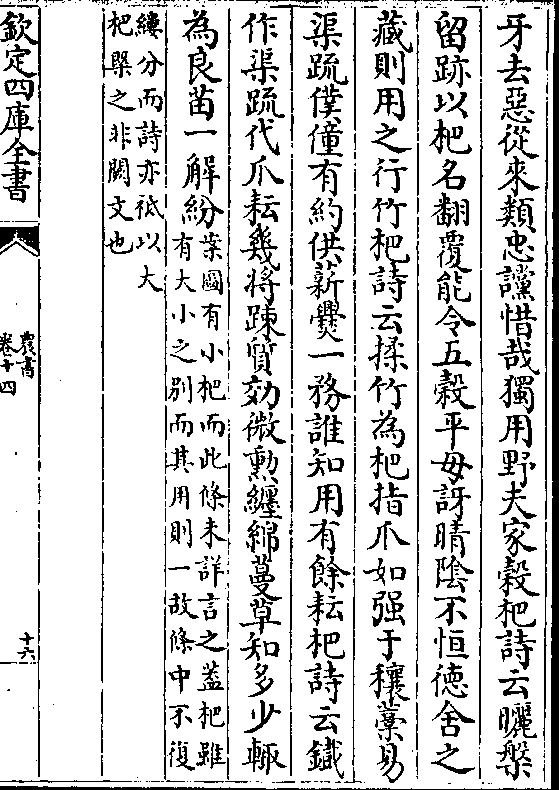 牙去惡從來類忠讜惜哉獨用野夫家穀杷詩云曬槃
留跡以杷名翻覆能令五穀平毋訝晴隂不恒徳舍之
藏則用之行竹杷詩云揉竹為杷指爪如强于穰藁易
渠疏僕僮有約供薪爨一務誰知用有餘耘杷詩云鐡
作渠疏代爪耘幾將踈質効微勲纏綿蔓草知多少輙
為良苗一解紛
案圖有小杷而此條未詳言之葢杷雖
有大小之别而其用則一故條中不復
縷分而詩亦祗以大
杷槩之非闕文也
欽定四庫全書
農書
卷十四
十六